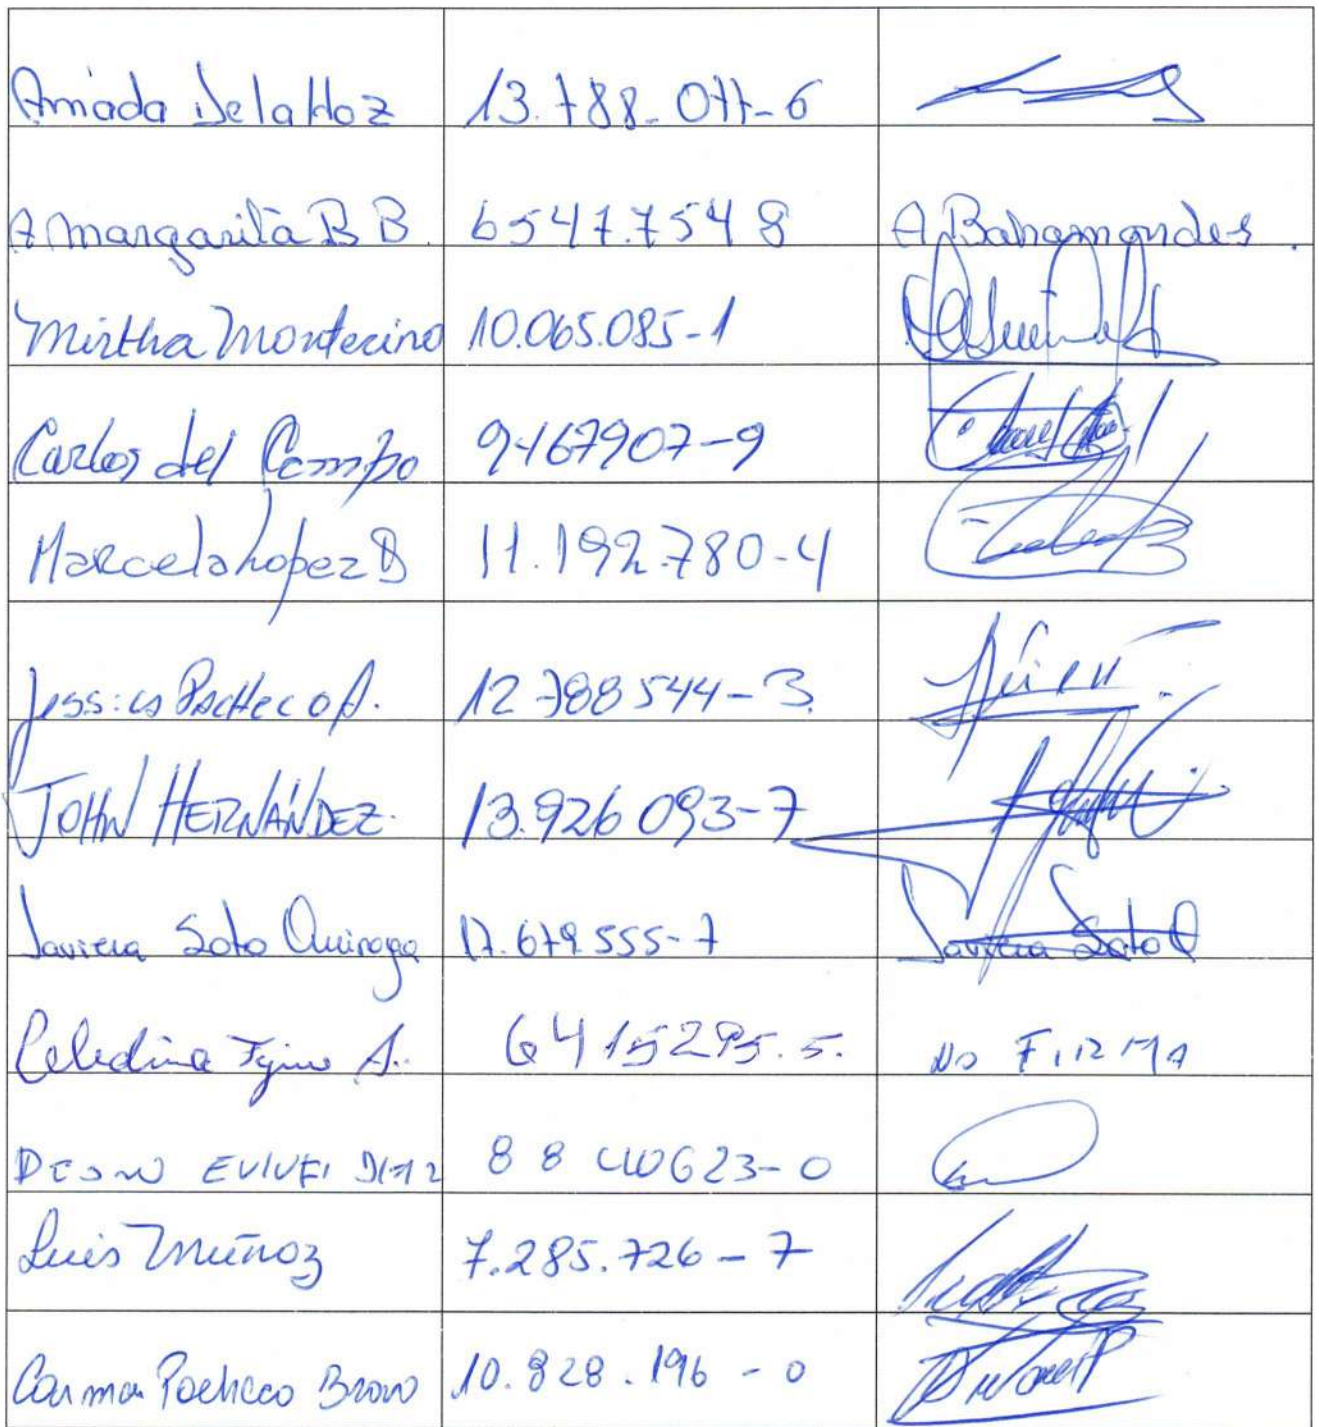 Amada De la Hoz 13.788.077-6
A Margarita B B. 6547.754 8 A Bahamondes.
Mirtha Montecino 10.065.085-1
Carlos del Campo 9167907-9
Marcela Lopez B 11.192.780-4
Jessica Pacheco A. 12 788544-3.
JOHN HERNÁNDEZ. 13.926 093-7
Javiera Soto Quiroga 17.679.555-7 Javiera Soto Q
Celedina A. 6415295.5. NO FIRMA
88 623-0
Luis Muñoz 7.285.726-7
Carmen Pacheco Bravo 10.828.196-0